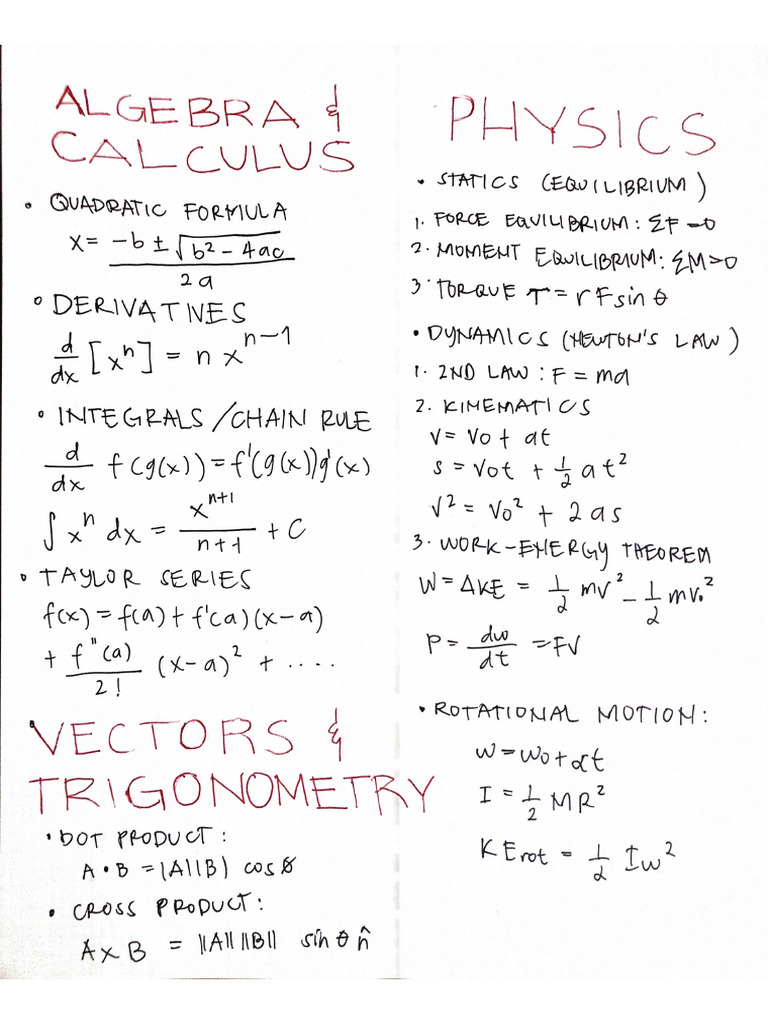 ALGEBRA &
CALCULUS
• QUADRATIC FORMULA
x = -b ± √b² - 4ac
2a
• DERIVATIVES
d/dx [xⁿ] = n xⁿ⁻¹
• INTEGRALS / CHAIN RULE
d/dx f(g(x)) = f'(g(x))g'(x)
∫ xⁿ dx = xⁿ⁺¹/n+1 + C
• TAYLOR SERIES
f(x) = f(a) + f'(a)(x-a)
+ f"(a)/2! (x-a)² + ....
VECTORS &
TRIGONOMETRY
• DOT PRODUCT:
A • B = |A||B| cos θ
• CROSS PRODUCT:
A x B = ||A|| ||B|| sin θ n̂
PHYSICS
• STATICS (EQUILIBRIUM)
1. FORCE EQUILIBRIUM: ΣF=0
2. MOMENT EQUILIBRIUM: ΣM=0
3. TORQUE τ = r F sin θ
• DYNAMICS (NEWTON'S LAW)
1. 2ND LAW: F = ma
2. KINEMATICS
v = vo + at
s = vot + 1/2 at²
v² = vo² + 2as
3. WORK-ENERGY THEOREM
W = ΔKE = 1/2 mv² - 1/2 mvo²
P = dw/dt = FV
• ROTATIONAL MOTION:
ω = ωo + αt
I = 1/2 MR²
KErot = 1/2 Iω²